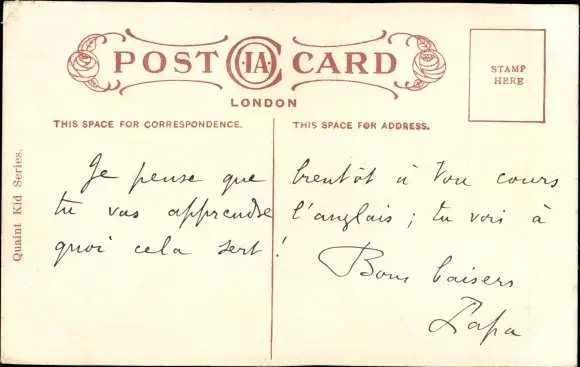 POST CIA CARD
LONDON
STAMP
HERE
THIS SPACE FOR CORRESPONDENCE.
THIS SPACE FOR ADDRESS.
Quaint Kid Series.
Je pense que bientôt à ton cours
tu vas apprendre l'anglais ; tu vois à
quoi cela sert !
Bons baisers
Papa